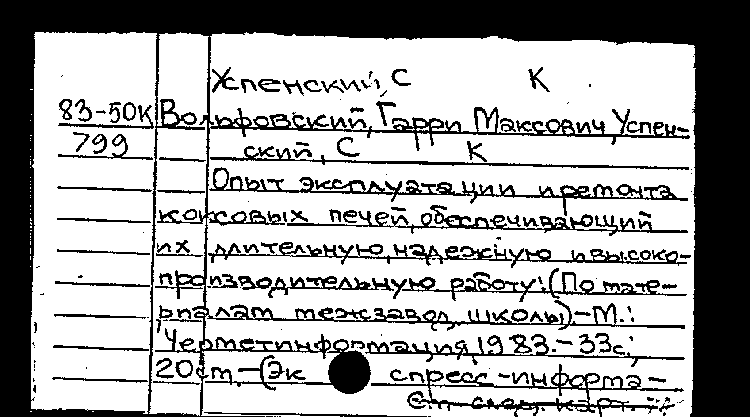 Успенский, С К
83-50К Вольфовский, Гарри Максович, Успен-
799 ский, С К
Опыт эксплуатации и ремонта
коксовых печей, обеспечивающий
их длительную, надежную и высоко-
производительную работу: (По мате-
риалам межзавод. школы).-М.:
Черметинформация, 1983.-33с.;
20см.-(Эк спресс-информа-
См. след. карт.